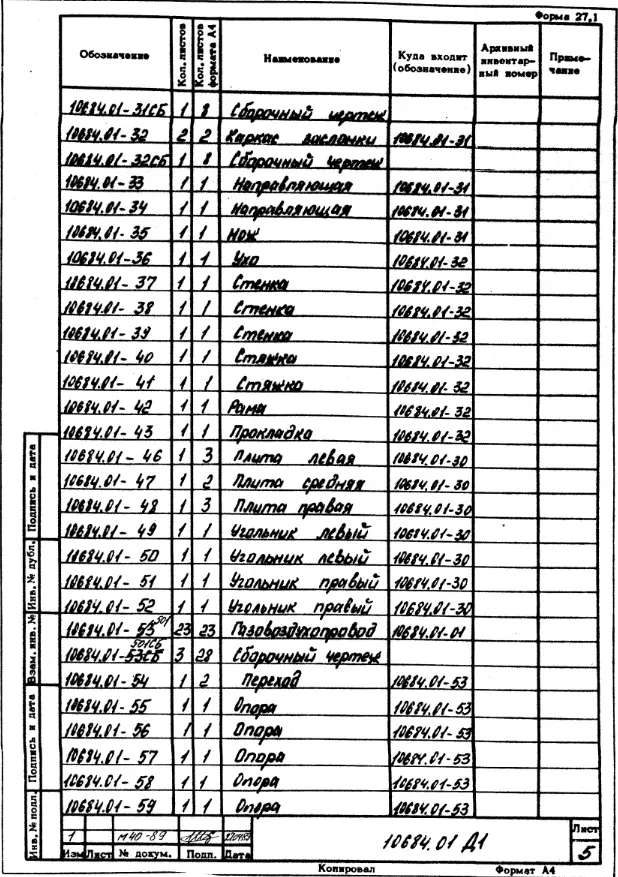 Форма 27,1
Обозначение Кол. листов Кол. листов формата А4 Наименование Куда входит (обозначение) Архивный инвентарный номер Примечание
10684.01-31СБ 1 8 Сборочный чертеж
10684.01-32 2 2 Каркас заслонки 10684.01-31
10684.01-32СБ 1 8 Сборочный чертеж
10684.01-33 1 1 Направляющая 10684.01-31
10684.01-34 1 1 Направляющая 10684.01-31
10684.01-35 1 1 Нож 10684.01-31
10684.01-36 1 1 Ухо 10684.01-32
10684.01-37 1 1 Стенка 10684.01-32
10684.01-38 1 1 Стенка 10684.01-32
10684.01-39 1 1 Стенка 10684.01-32
10684.01-40 1 1 Стяжка 10684.01-32
10684.01-41 1 1 Стяжка 10684.01-32
10684.01-42 1 1 Рама 10684.01-32
10684.01-43 1 1 Прокладка 10684.01-32
10684.01-46 1 3 Плита левая 10684.01-30
10684.01-47 1 2 Плита средняя 10684.01-30
10684.01-48 1 3 Плита правая 10684.01-30
10684.01-49 1 1 Угольник левый 10684.01-30
10684.01-50 1 1 Угольник левый 10684.01-30
10684.01-51 1 1 Угольник правый 10684.01-30
10684.01-52 1 1 Угольник правый 10684.01-30
501
10684.01-53 23 23 Газовоздухопровод 10684.01-01
501СБ
10684.01-53СБ 3 28 Сборочный чертеж
10684.01-54 1 2 Переход 10684.01-53
10684.01-55 1 1 Опора 10684.01-53
10684.01-56 1 1 Опора 10684.01-53
10684.01-57 1 1 Опора 10684.01-53
10684.01-58 1 1 Опора 10684.01-53
10684.01-59 1 1 Опора 10684.01-53
Подпись и дата
Инв. № дубл.
Взам. инв. №
Подпись и дата
Инв. № подл.
1 М40-89
Изм Лист № докум. Подп. Дата
10684.01 Д1
Лист
5
Копировал Формат А4